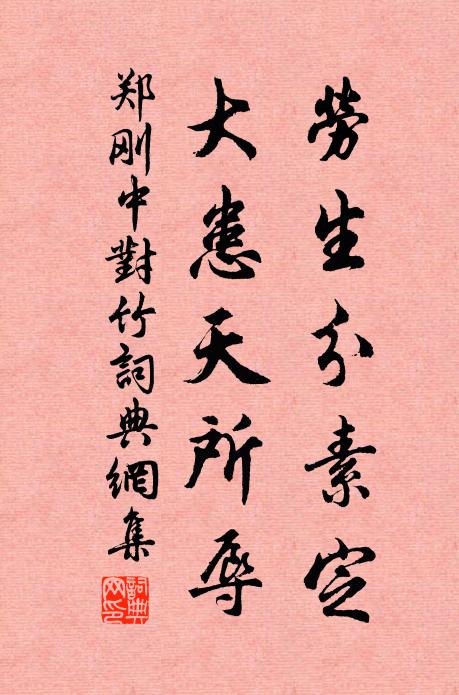 勞生分素定
大患天所辱
郑刚中對竹詞典網集
詞典網印